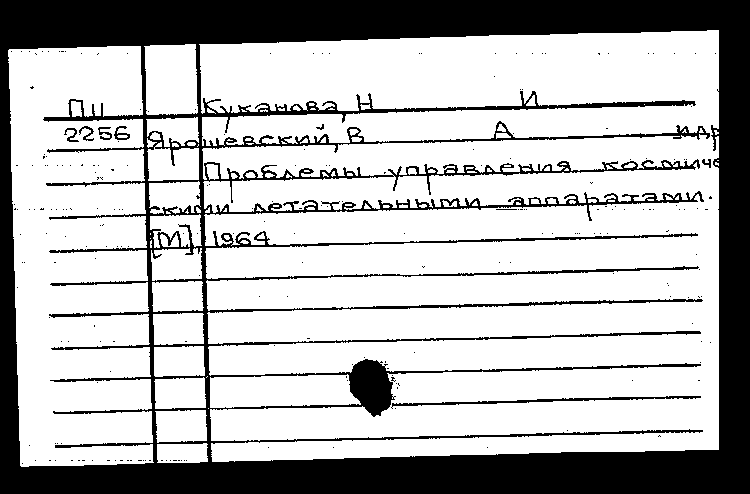 Пц Куканова, Н И
2256 Ярошевский, В А и др
Проблемы управления космиче
скими летательными аппаратами.
[М], 1964